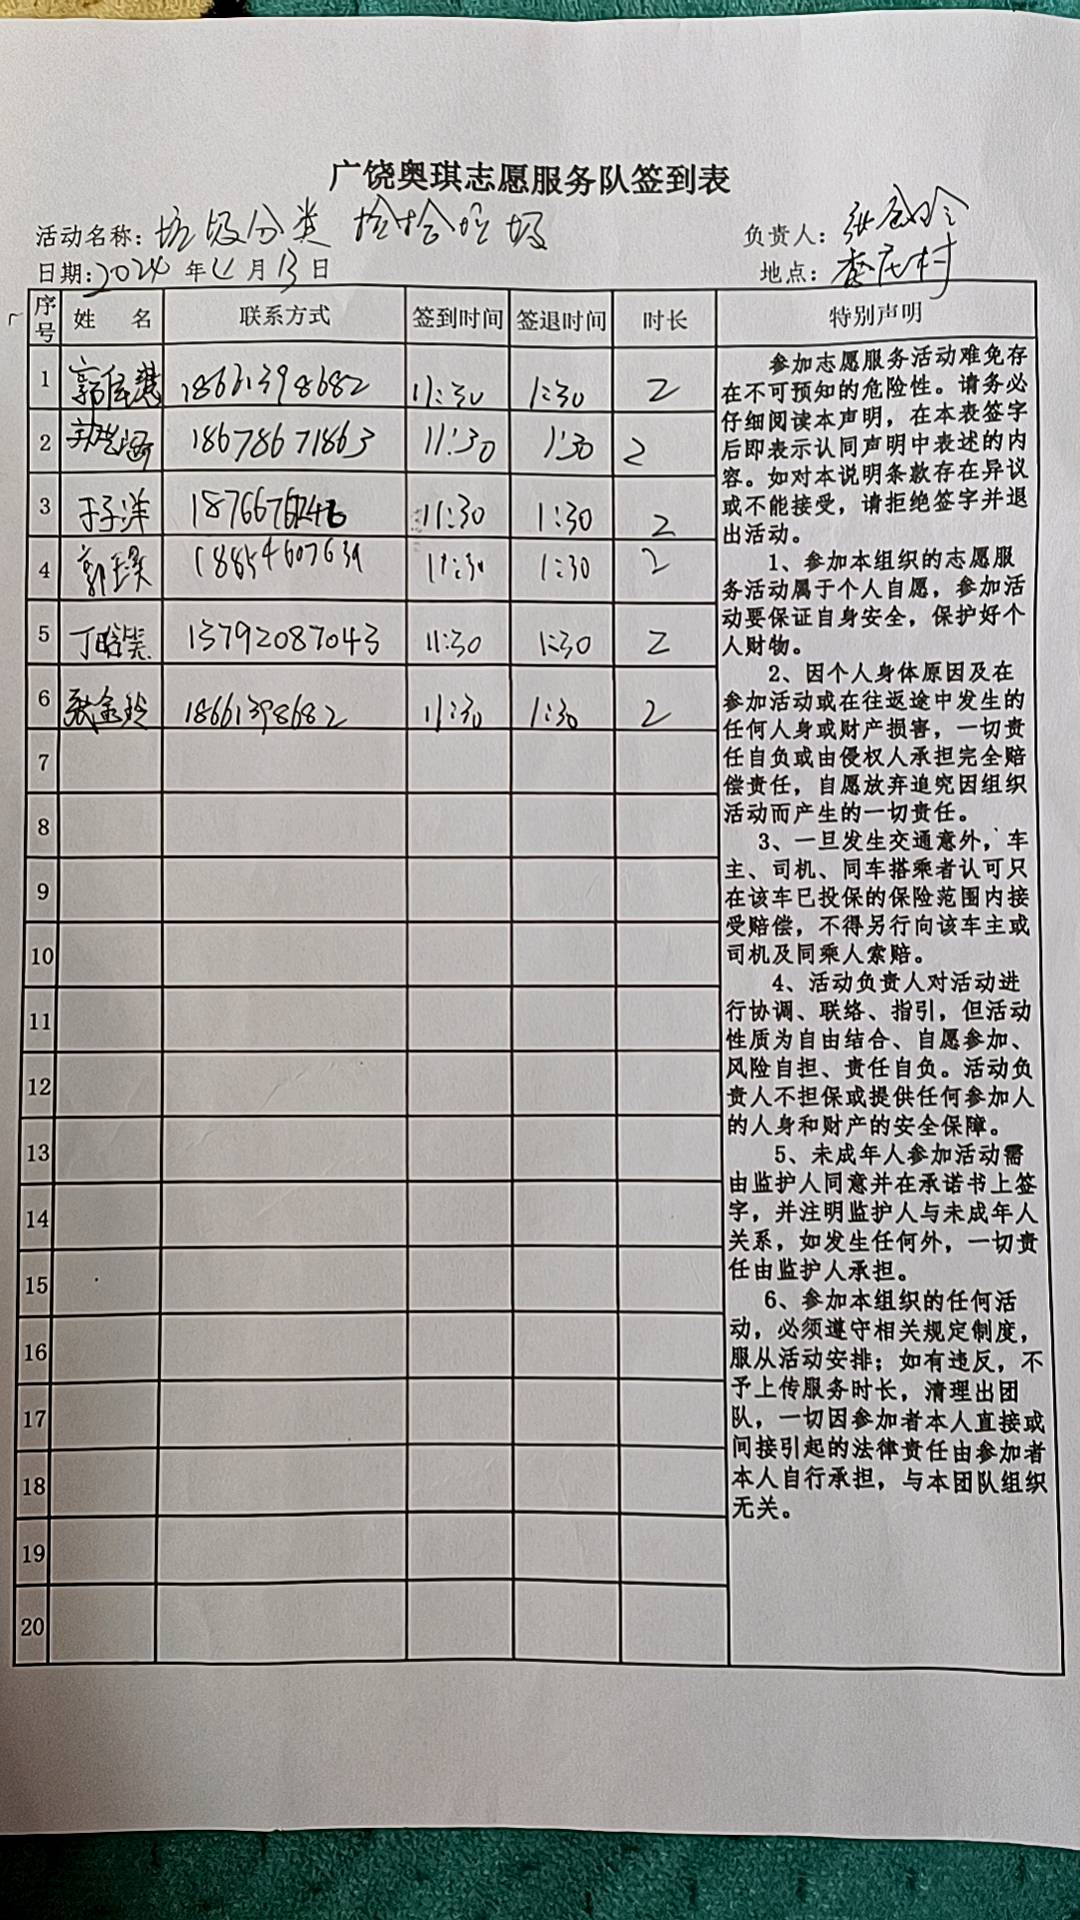 广饶奥琪志愿服务队签到表
活动名称：垃圾分类 捡拾垃圾 负责人：张金玲
日期：2024年4月13日 地点：李庄村
序号 姓名 联系方式 签到时间 签退时间 时长 特别声明
1 18661398682 11:30 1:30 2
2 18678671863 11:30 1:30 2
3 于子洋 11:30 1:30 2
4 18854607639 11:30 1:30 2
5 13792087043 11:30 1:30 2
6 张金玲 18661398682 11:30 1:30 2
7
8
9
10
11
12
13
14
15
16
17
18
19
20
参加志愿服务活动难免存
在不可预知的危险性。请务必
仔细阅读本声明，在本表签字
后即表示认同声明中表述的内
容。如对本说明条款存在异议
或不能接受，请拒绝签字并退
出活动。
1、参加本组织的志愿服
务活动属于个人自愿，参加活
动要保证自身安全，保护好个
人财物。
2、因个人身体原因及在
参加活动或在往返途中发生的
任何人身或财产损害，一切责
任自负或由侵权人承担完全赔
偿责任，自愿放弃追究因组织
活动而产生的一切责任。
3、一旦发生交通意外，车
主、司机、同车搭乘者认可只
在该车已投保的保险范围内接
受赔偿，不得另行向该车主或
司机及同乘人索赔。
4、活动负责人对活动进
行协调、联络、指引，但活动
性质为自由结合、自愿参加、
风险自担、责任自负。活动负
责人不担保或提供任何参加人
的人身和财产的安全保障。
5、未成年人参加活动需
由监护人同意并在承诺书上签
字，并注明监护人与未成年人
关系，如发生任何外，一切责
任由监护人承担。
6、参加本组织的任何活
动，必须遵守相关规定制度，
服从活动安排；如有违反，不
予上传服务时长，清理出团
队，一切因参加者本人直接或
间接引起的法律责任由参加者
本人自行承担，与本团队组织
无关。